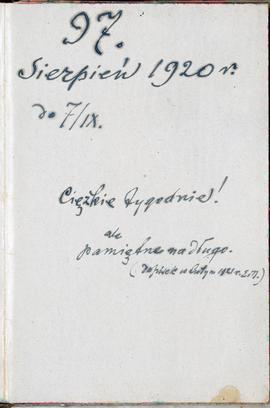 97.
Sierpień 1920 r.
do 7/IX.
Ciężkie tygodnie!
ale
pamiętne na długo.
(Dopisek w lutym 1921 r.